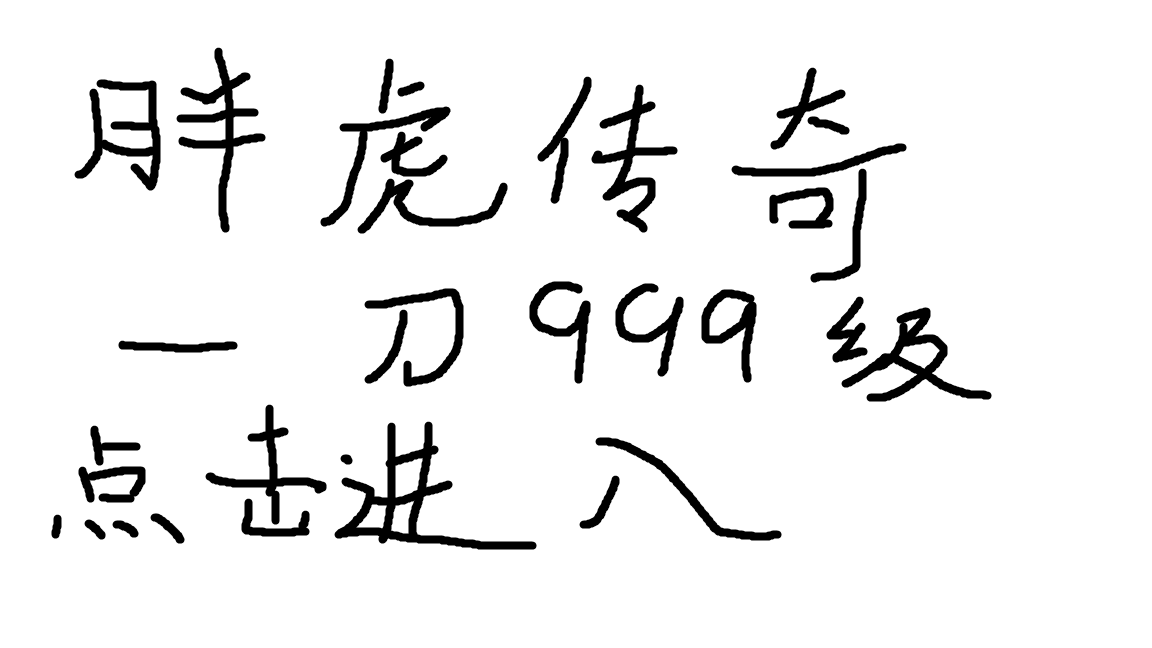 胖虎传奇
一刀999级
点击进入